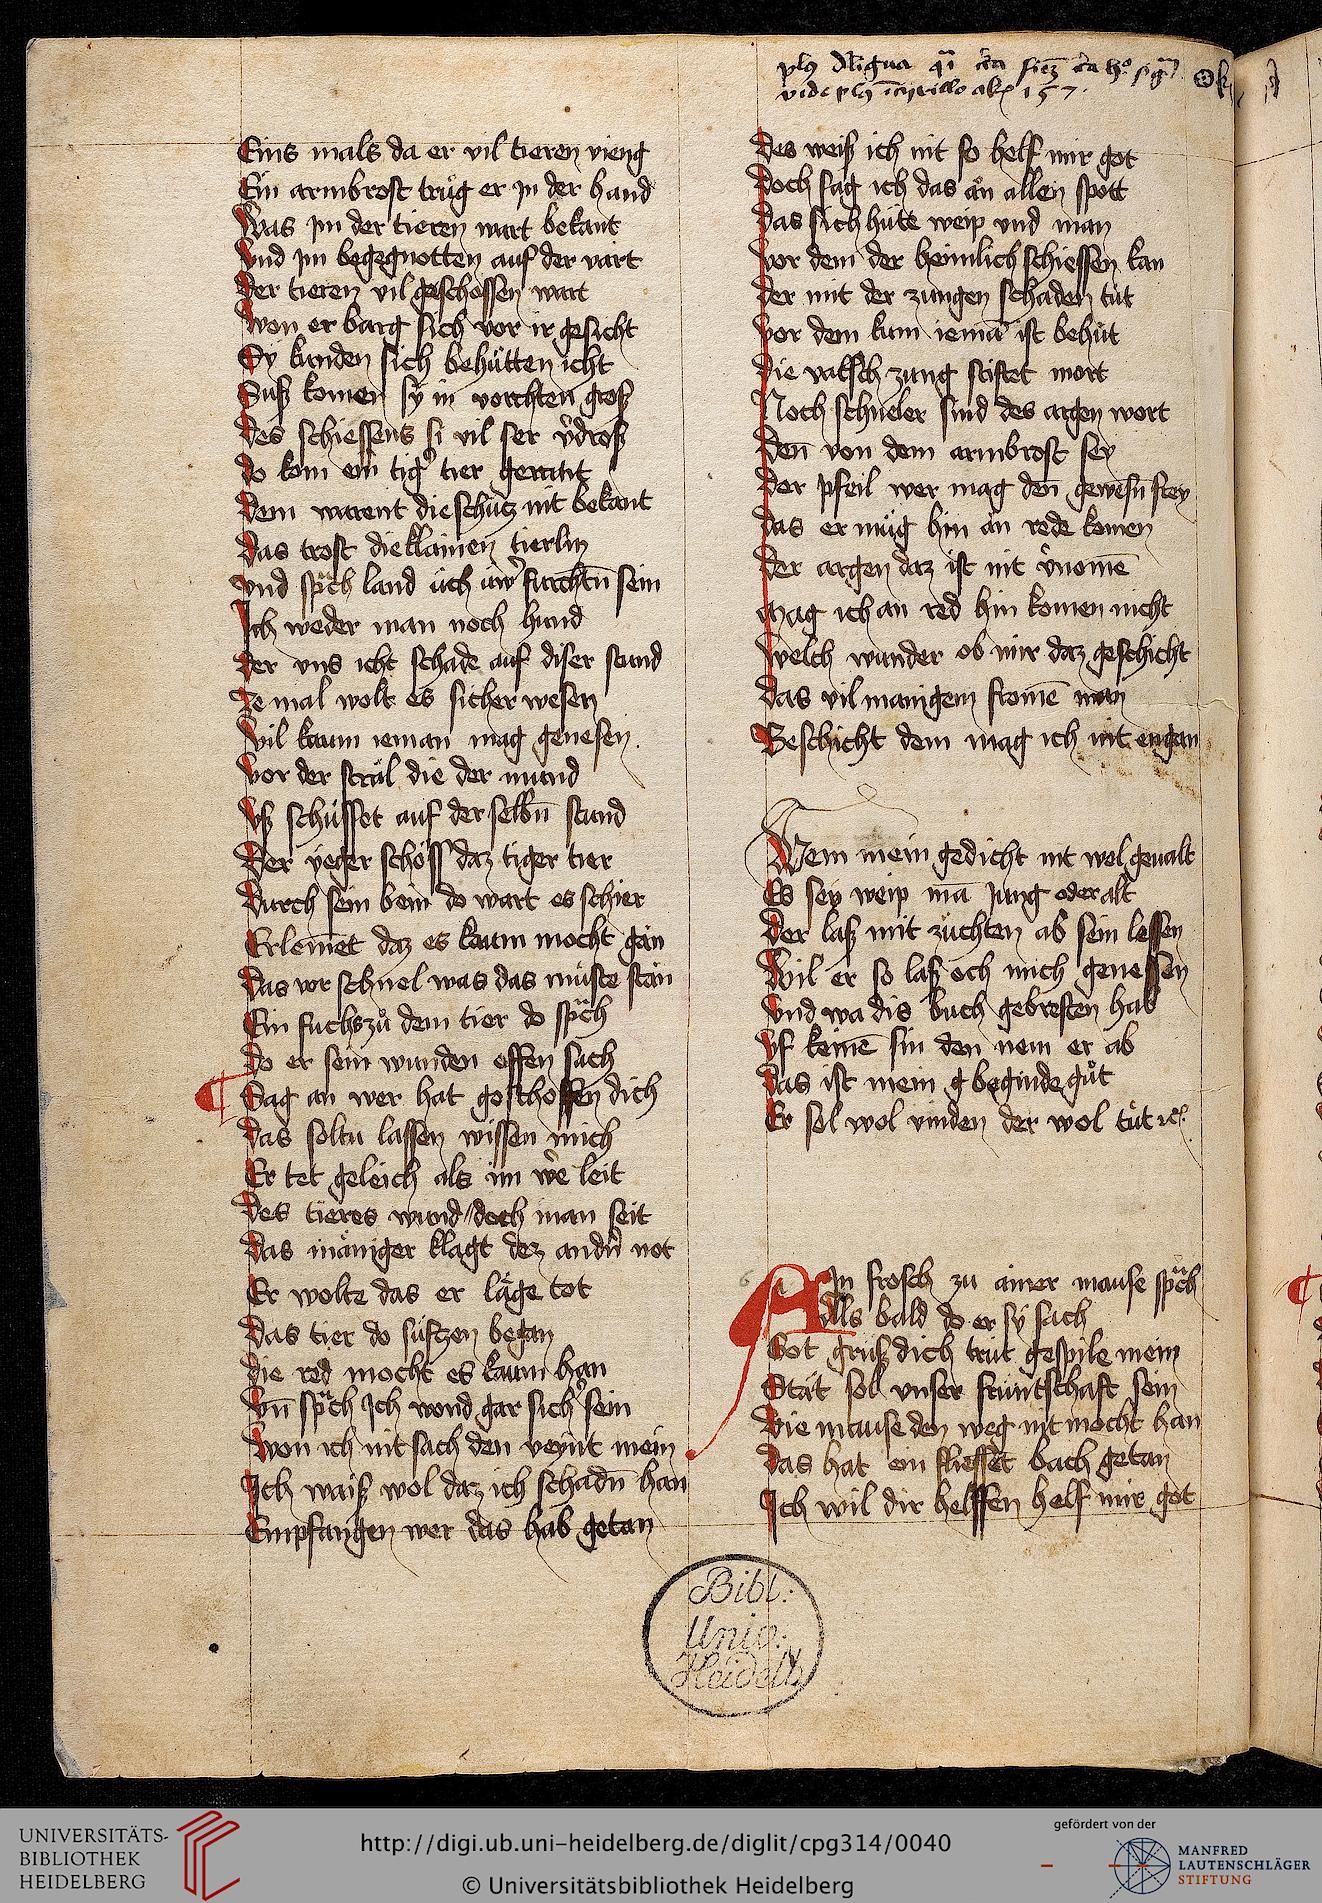 vide
157
Eins mals da er vil tieren vieng
Ein armbrost trůg er jn der hand
Was jm der tieren wart bekant
Vnd jm begegnotten auf der vart
Der tieren vil geschossen wart
Won er barg sich vor ir gesicht
Sy kunden sich behütten icht
Suß komen sy in vorchten groß
Des schiessens si vil ser v̉droß
do kom ein tig̉ tier gerant
Dem warent die schütz nit bekant
Das trost die klainen tierlin
vnd sprͣch land üch üw̉ furchtn̄ sein
Ich weder man noch hund
Der vns icht schade auf diser stund
Ze mal wolt es sicher wesen
Vil kaum ieman mag genesen
Vor der strāl die der mund
Vß schüsset auf der selbn̄ stund
Der yeger schöss daz tiger tier
Durch sein bein do wart es schier
Erlemet daz es kaum mocht gän
Das vor schnel was das müste stän
Ein fuchs zů dem tier do sprͣch
Do er sein wunden offen sach
Sag an wer hat geschossen dich
Das soltu lassen wissen mich
Er tet geleich als im wê leit
Des tieres wund / doch man seit
Das mäniger klagt dez andn̉ not
Er wolte das er läge tot
Das tier do süfftzen began
Die red mocht es kaum han
Vn̄ sprͣch Ich wond gar sich̉ sein
Won ich nit sach den veynt mein
Ich waiß wol daz ich schadn̄ han
Empfangen wer das hab getan
Des weiß ich nit so helf mir got
Doch sag ich das än allen spott
Das sich hüte weip vnd man
Vor dem der heimlich schiessen kan
Der mit der zungen schaden tüt
Vor dem kum iemā ist behüt
Die valsch zung stiftet mort
Noch schneler sind des argen wort
Den̄ von dem armbrost sey
Der pfeil wer mag den̄ gewesn̄ frey
Das er müg hin än rede komen
Der argen daz ist nit v̉nomē
Mag ich an red hin komen nicht
Welch wunder ob mir daz geschicht
Das vil manigem fromē man
Beschicht dem mag ich nit engan
Wem mein gedicht nit wol geualt
Es sey weip mā Jung oder alt
Der laß mit züchten ab sein lessen
Wil er so laß och mich genessen
Vnd wa dis buch gebresten hab
Vf keinē sin den nem er ab
Das ist mein g beginde gůt
Er sol wol vinden der wol tůt
AIn frosch zu ainer mause sprͣch
Alls bald do er sy sach
Got grüß dich trüt gespile mein
Stät sol vnser früntschaft sein
Die mause den weg nit mocht han
Das hat ein fliessēt bach getan
Ich wil dir helffen helf mir got
Bibl:
Univ:
Heidelb
UNIVERSITÄTS-
BIBLIOTHEK
HEIDELBERG
http://digi.ub.uni-heidelberg.de/diglit/cpg314/0040
© Universitätsbibliothek Heidelberg
gefördert von der
MANFRED
LAUTENSCHLÄGER
STIFTUNG